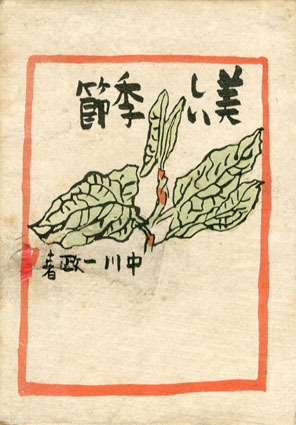 美しい季節
中川一政著